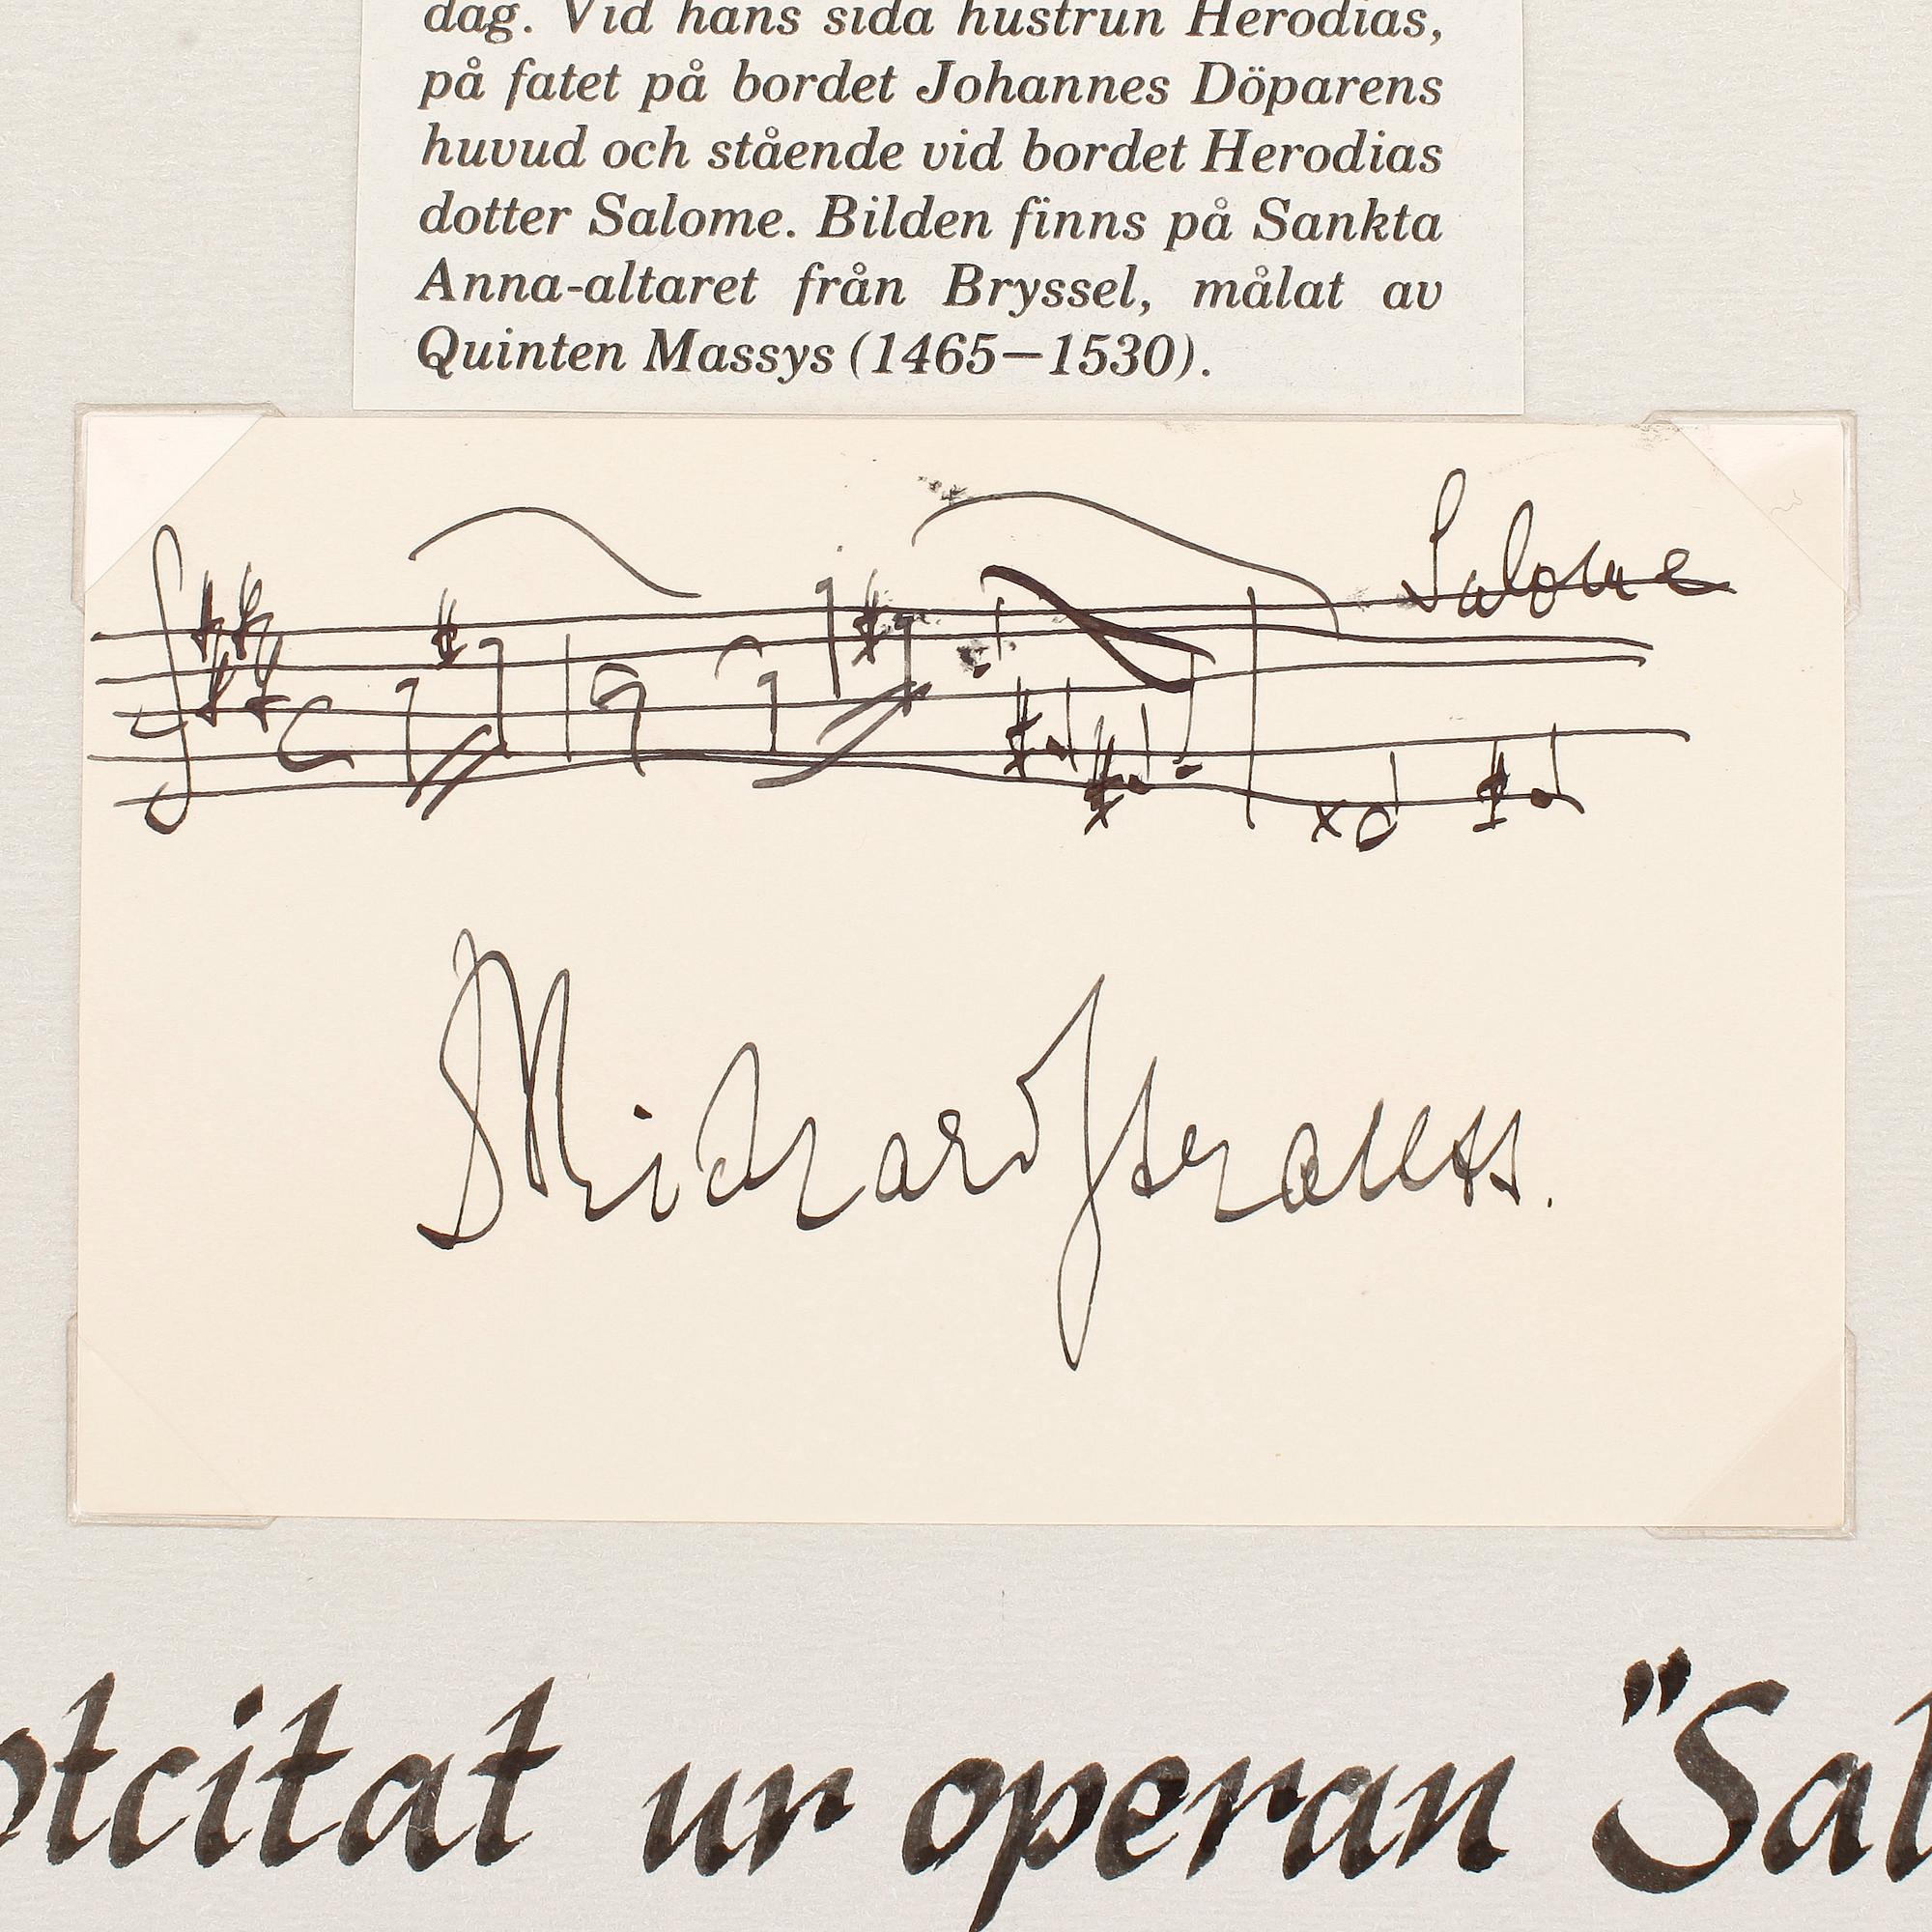 dag. Vid hans sida hustrun Herodias,
på fatet på bordet Johannes Döparens
huvud och stående vid bordet Herodias
dotter Salome. Bilden finns på Sankta
Anna-altaret från Bryssel, målat av
Quinten Massys (1465–1530).
Salome
Richard Strauss.
otcitat ur operan "Sal